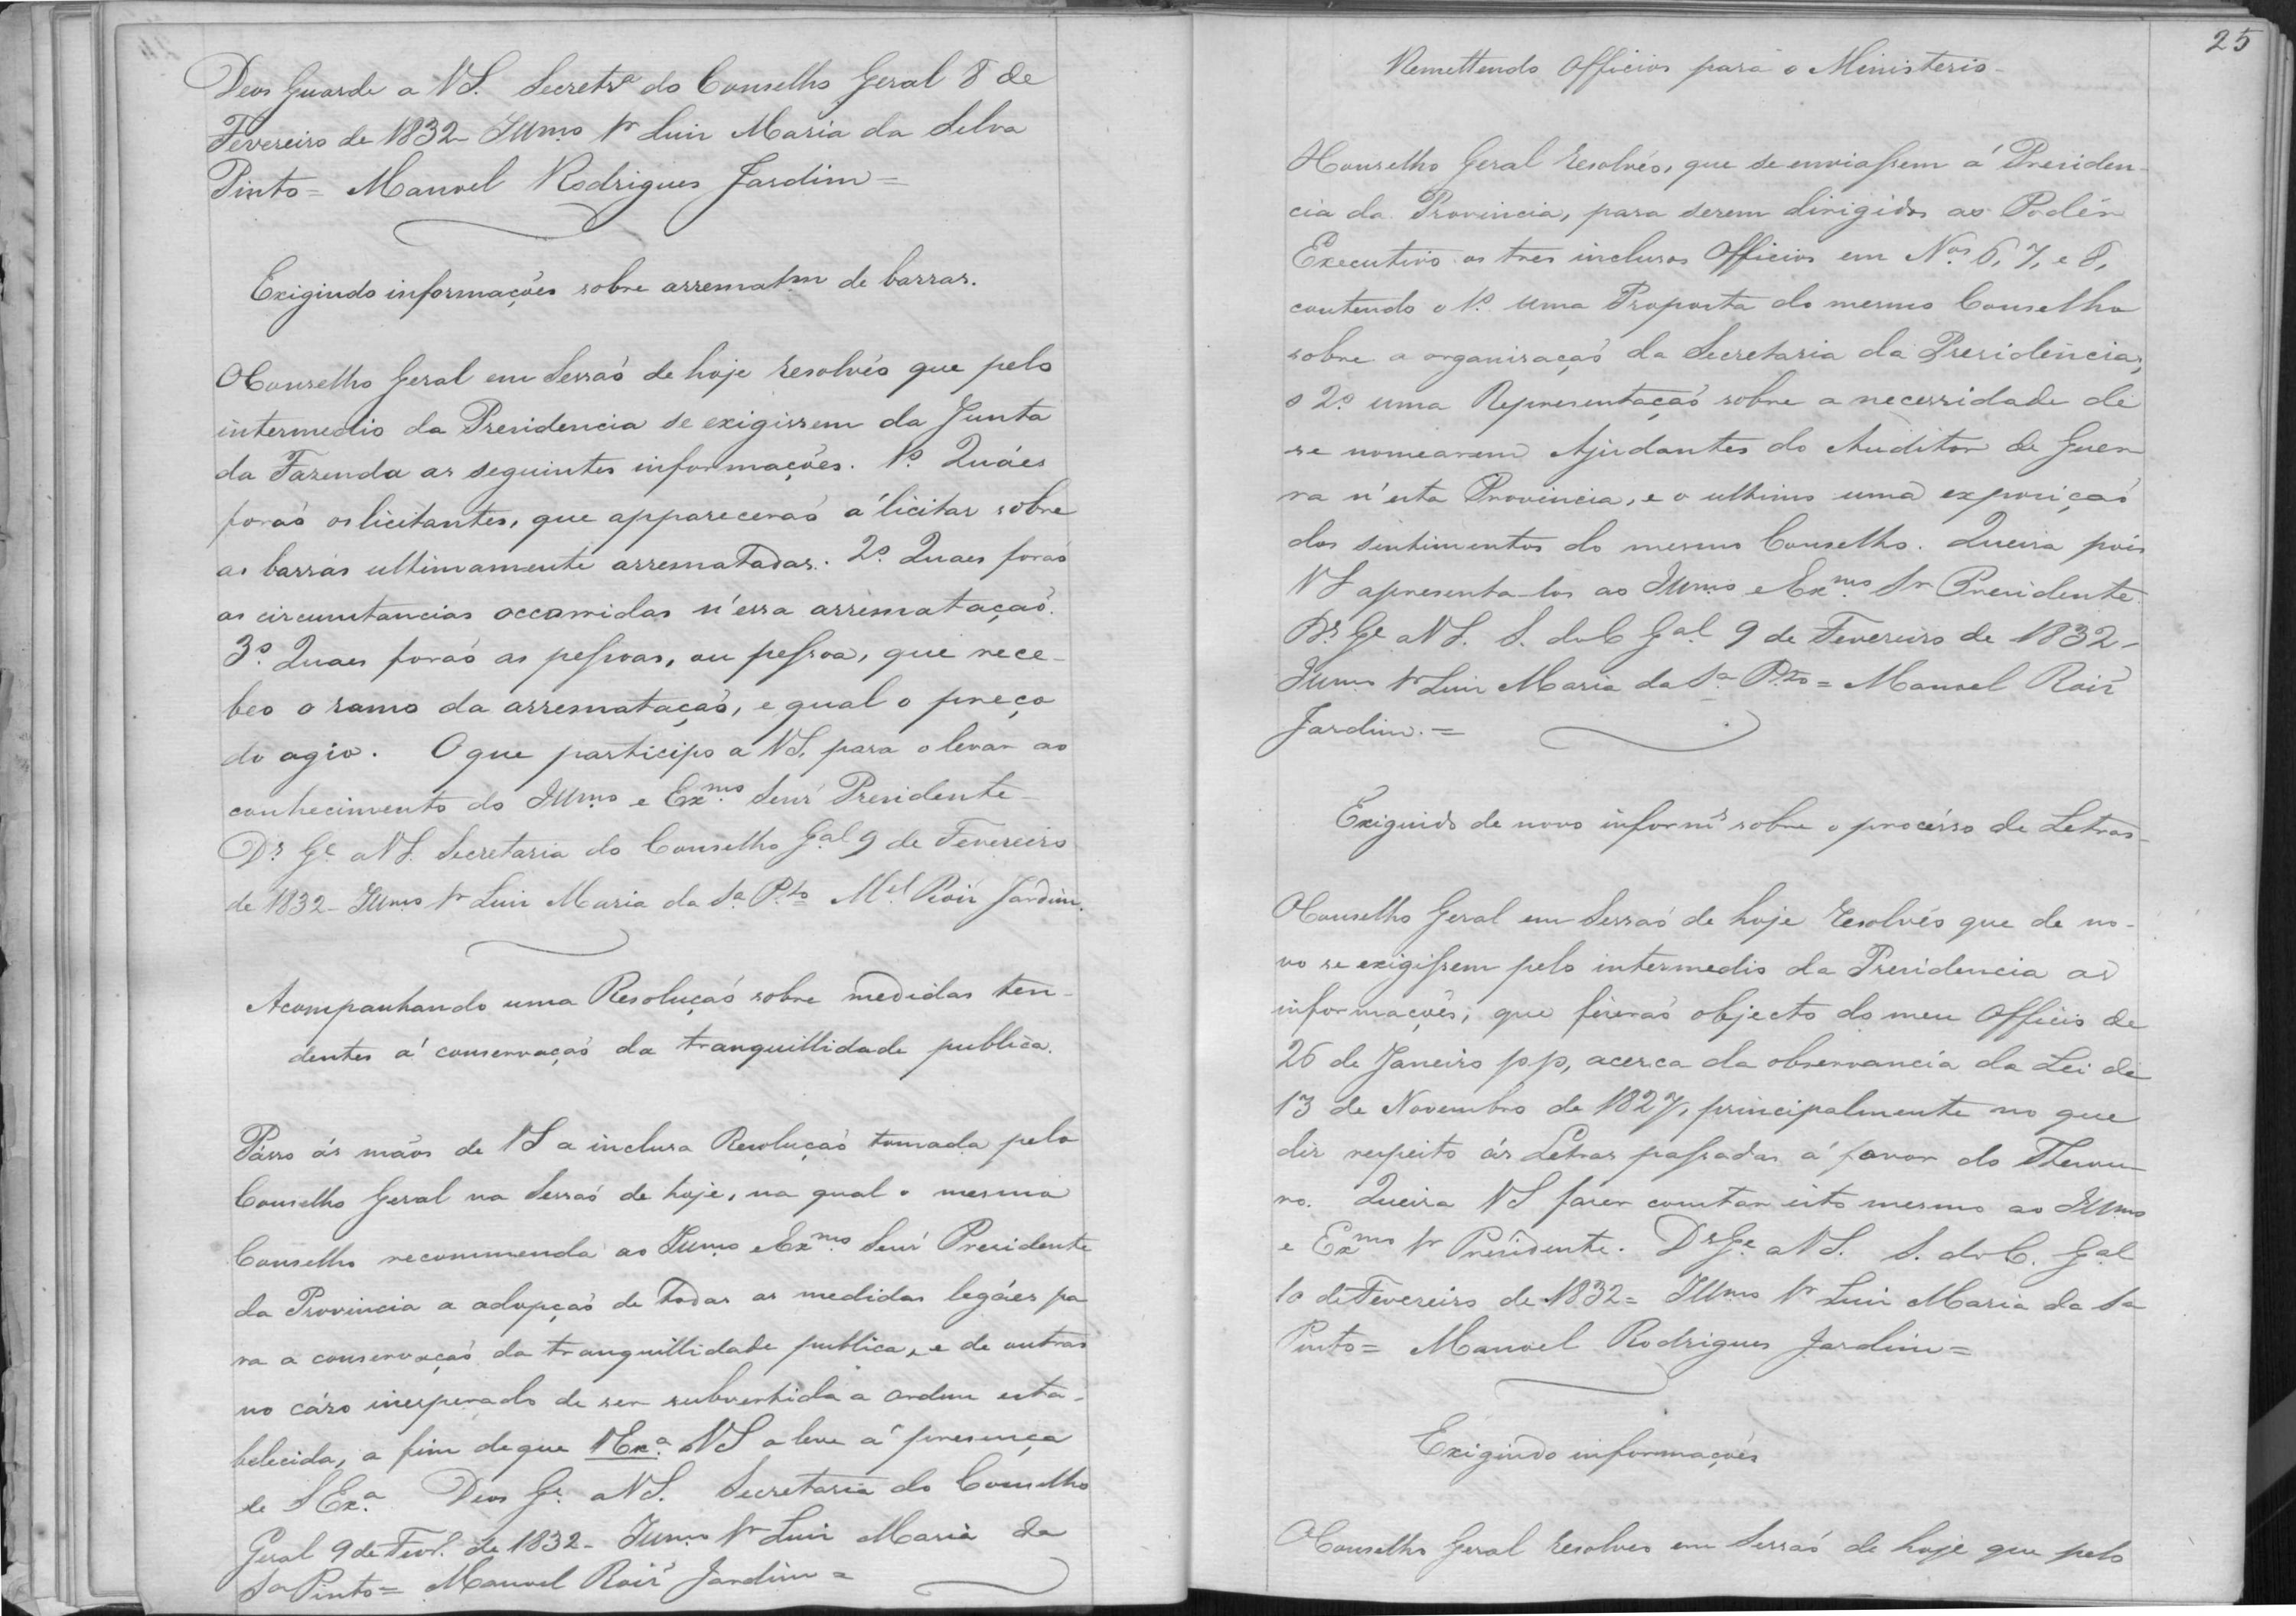 Deos Guarde a VS. Secretrª do Conselho Geral 8 de
Fevereiro de 1832 - Illmo Sr Luis Maria da Silva
Pinto = Manoel Rodrigues Jardim =
Exigindo informações sobre arrematm de barras.
O Conselho Geral em Sessaõ de hoje resolvêo que pelo
intermedio da Presidencia se exigissem da Junta
da Fazenda as seguintes informações. 1º Quáes
foraõ os licitantes, que appareceraõ á licitar sobre
as barras ultimamente arrematadas. 2º Quaes foraõ
as circumstancias occorridas n'essa arremataçaõ.
3º Quaes foraõ as pessoas, ou pessoa, que rece-
beo o ramo da arremataçaõ, e qual o preço
do agio. O que participo a VS. para o levar ao
conhecimento do Illmo e Exmo Senr Presidente
Ds Ge a VS. Secretaria do Conselho Gal 9 de Fevereiro
de 1832 - Illmo Sr Luis Maria da Sª Pto = Mel Roiz Jardim.
Acompanhando uma Resoluçaõ sobre medidas ten-
dentes á conservaçaõ da tranquillidade publica.
Pásso ás mãos de VS a inclusa Resoluçaõ tomada pelo
Conselho Geral na Sessaõ de hoje, na qual o mesmo
Conselho recommenda ao Illmo e Exmo Senr Presidente
da Provincia a adopçaõ de todas as medidas legáes pa
ra a conservaçaõ da tranquillidade publica, e de outras
no cáso inesperado de ser subvertida a ordem esta-
belecida, a fim de que VExª VS a leve á presença
de SExª Deos Ge a VS. Secretaria do Conselho
Geral 9 de Fevrº de 1832 - Illmo Sr Luis Maria da
Sª Pinto = Manoel Roiz Jardim =
25
Remettendo Officios para o Ministerio -
O Conselho Geral resolvêo, que se enviassem á Presiden-
cia da Provincia, para serem dirigidos ao Podêr
Executivo os tres inclusos Officios em Nos 6, 7, e 8,
contendo o 1º uma Proposta do mesmo Conselho
sobre a organisaçaõ da Secretaria da Presidencia,
o 2º uma Representaçaõ sobre a necessidade de
se nomearem Ajudantes do Auditor de Guer
ra n'esta Provincia, e o ultimo uma exposiçaõ
dos sentimentos do mesmo Conselho. Queira pois
VS apresenta-los ao Illmo e Exmo Sr Presidente.
Ds Ge a VS. S. do C Gal 9 de Fevereiro de 1832 -
Illmo Sr Luis Maria da Sª Pto = Manoel Roiz
Jardim. =
Exigindo de novo informs sobre o processo de Letras -
O Conselho Geral em Sessaõ de hoje resolvêo que de no-
vo se exigissem pelo intermedio da Presidencia as
informações, que fizeraõ objecto do meu Officio de
26 de Janeiro p.p, acerca da observancia da Lei de
13 de Novembro de 1827, principalmente no que
diz respeito ás Letras passadas á favor do Thesou
ro. Queira VS fazer constar isto mesmo ao Illmo
e Exmo Sr Presidente. Ds Ge a VS. S. do C. Gal
10 de Fevereiro de 1832 = Illmo Sr Luis Maria da Sª
Pinto = Manoel Rodrigues Jardim =
Exigindo informações
O Conselho Geral resolveo em Sessaõ de hoje que pelo